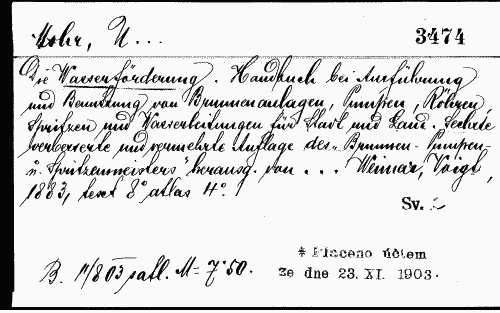 Mohr, U...
3474
Die Wasserförderung. Handbuch bei Ausführung
und Benutzung von Brunnenanlagen, Pumpen, Röhren
Spritzen und Wasserleitungen für Stadt und Land. Sechste
verbesserte und vermehrte Auflage des „Brunnen- Pumpen-
u. Spritzenmeisters" herausg. von ... Weimar, Voigt,
1883, text 8° atlas 4°.
Sv. 2
B. 11/8 03 M = 7·50.
* Placeno účtem
ze dne 23. XI. 1903.